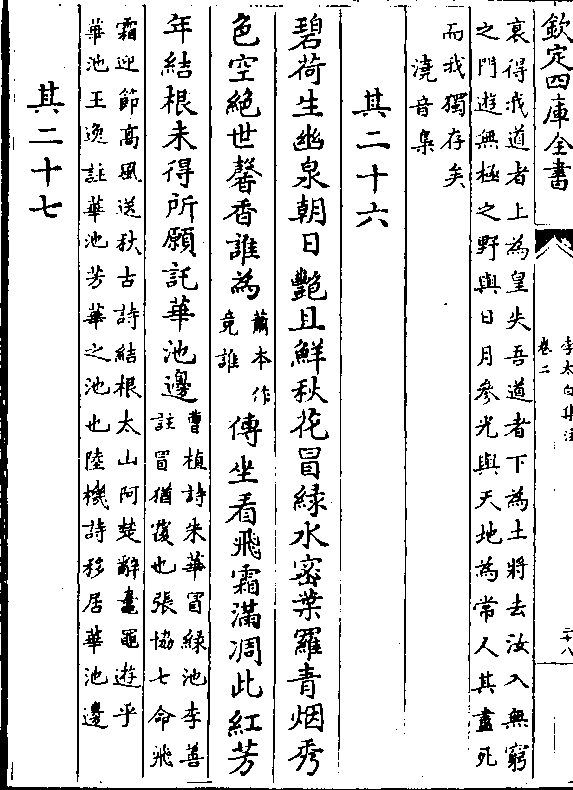 欽定四庫全書
李太白集注
卷二
二十八
哀得我道者上為皇失吾道者下為土將去汝入無窮
之門遊無極之野與日月參光與天地為常人其盡死
而我獨存矣
澆音梟
其二十六
碧荷生幽泉朝日艷且鮮秋花冒緑水密葉羅青烟秀
色空絶世馨香誰為
蕭本作
竟誰
傳坐看飛霜滿凋此紅芳
年結根未得所願託華池邊
曹植詩朱華冒緑池李善
註冒猶覆也張協七命飛
霜迎節高風送秋古詩結根太山阿楚辭䵷黽遊乎
華池王逸註華池芳華之池也陸機詩移居華池邊
其二十七